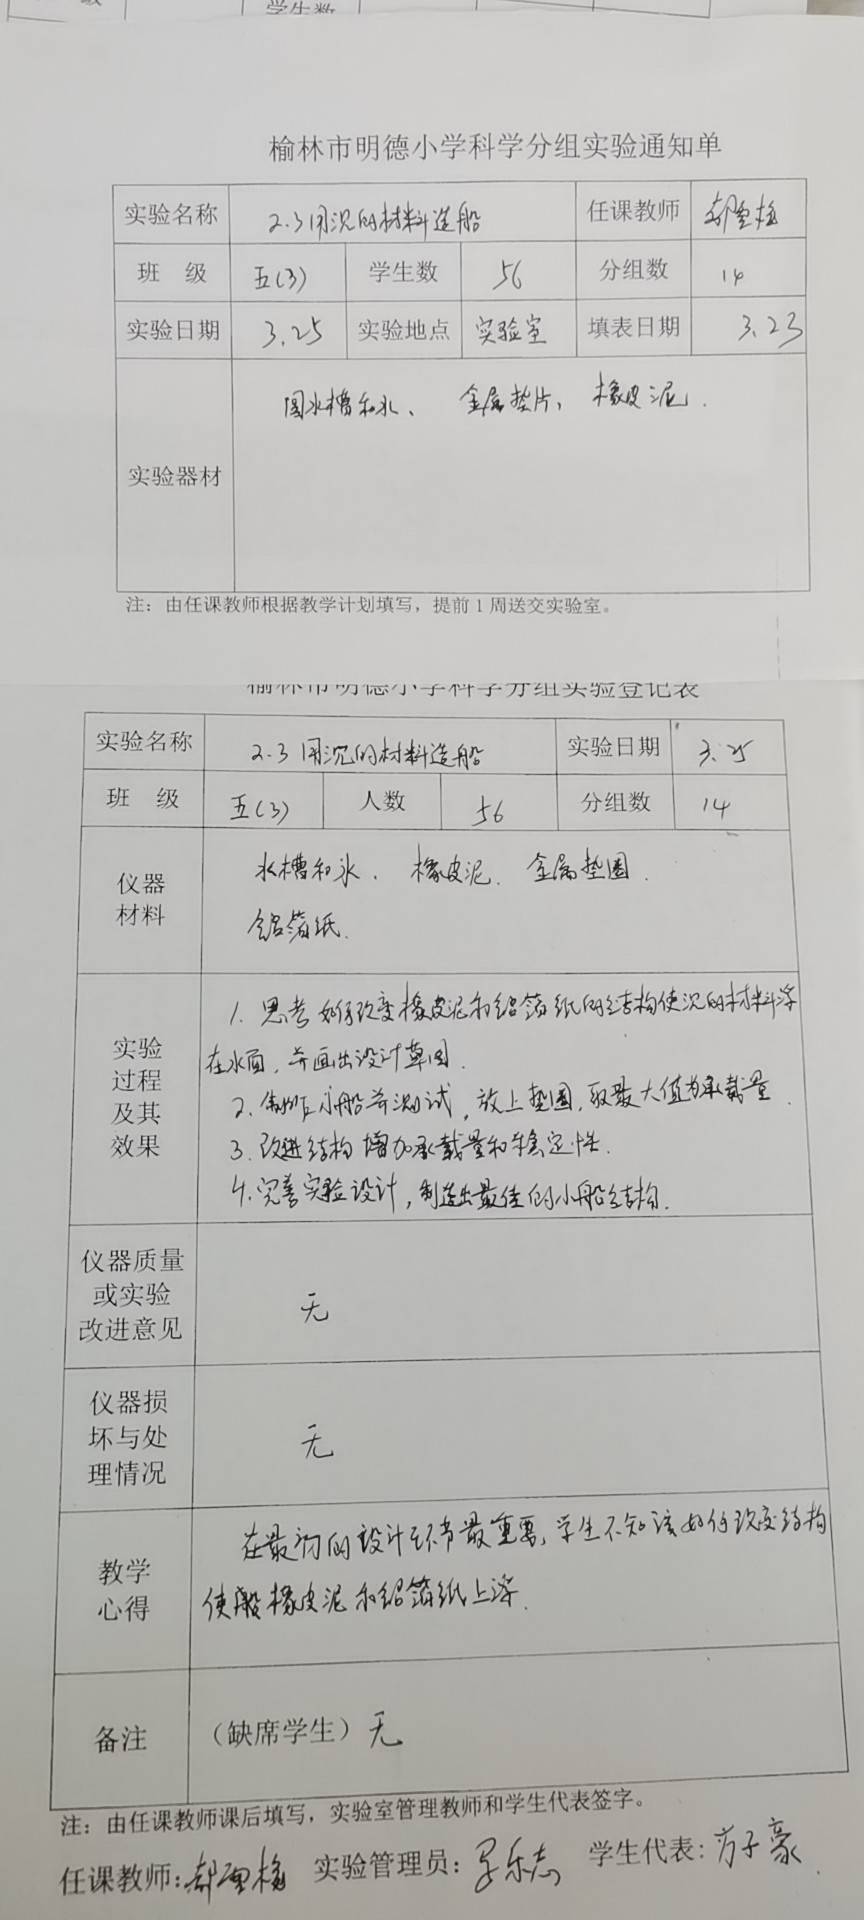 学生数
榆林市明德小学科学分组实验通知单
实验名称 2.3用沉的材料造船 任课教师
班 级 五(3) 学生数 56 分组数 14
实验日期 3.25 实验地点 实验室 填表日期 3.23
实验器材 水槽和水、 金属垫片, 橡皮泥.
注：由任课教师根据教学计划填写，提前1周送交实验室。
榆林市明德小学科学分组实验登记表
实验名称 2.3用沉的材料造船 实验日期 3.25
班 级 五(3) 人数 56 分组数 14
仪器
材料
水槽和水. 橡皮泥. 金属垫圈.
铝箔纸.
实验
过程
及其
效果
1. 思考如何改变橡皮泥和铝箔纸的结构使沉的材料浮
在水面, 并画出设计草图.
2. 制作小船并测试, 放上垫圈, 取最大值为承载量.
3. 改进结构增加承载量和稳定性.
4. 完善实验设计, 制造出最佳的小船结构.
仪器质量
或实验
改进意见
无
仪器损
坏与处
理情况
无
教学
心得
在最初的设计环节最重要, 学生不知该如何改变结构
使船橡皮泥和铝箔纸上浮.
备注 （缺席学生）无
注：由任课教师课后填写，实验室管理教师和学生代表签字。
任课教师: 实验管理员: 学生代表: 方子豪